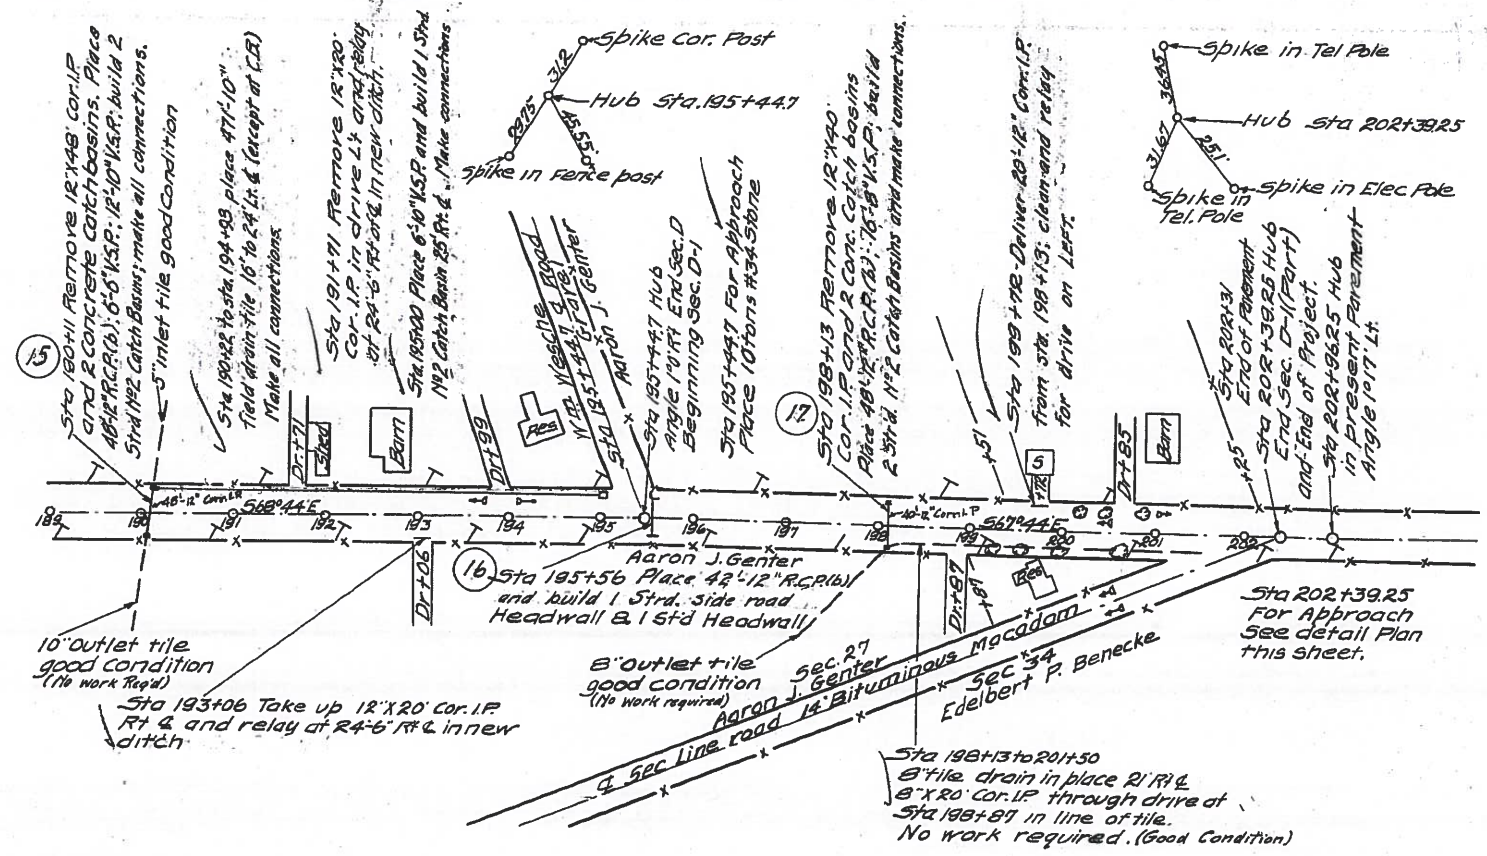 15
Sta 190+11 Remove 12"X48' Cor. I.P.
and 2 Concrete Catchbasins. Place
48'-12" R.C.P.(b); 6'-6" V.S.P.; 12'-10" V.S.P.; build 2
Strd Nº2 Catch Basins; make all connections.
5" inlet tile good Condition
Sta 190+22 to sta. 194+93 place 471'-10"
field drain tile 16' to 24' Lt. ℄ (except at C.B.)
Make all connections.
Sta 191+71 Remove 12"X20'
Cor. I.P. in drive Lt and relay
at 24'-6" Rt of ℄ in new ditch.
Sta. 195+00 Place 6'-10" V.S.P. and build 1 Strd.
Nº2 Catch Basin 25' Rt. ℄. Make connections
Spike Cor. Post
31.2
Hub Sta. 195+44.7
29.75
45.55
Spike in Fence post
Wm Wesche Road
Sta 195+44.7 Gravel
Aaron J. Genter
Aaron J. Genter
Sta 195+44.7 Hub
Angle 1°0' Rt End Sec. D
Beginning Sec. D-1
Sta 195+44.7 For Approach
Place 10 tons #34 Stone
17
Sta 198+13 Remove 12"X40'
Cor. I.P. and 2 Conc. Catch basins
Place 48'-12" R.C.P.(b); 76'-8" V.S.P.; build
2 Strd. Nº2 Catch Basins and make connections.
Sta 199+72 Deliver 20'-12" Cor. I.P.
from sta. 198+13; clean and relay
for drive on LEFT.
Spike in Tel Pole
36.45
Hub Sta 202+39.25
31.67
25.1
Spike in
Tel. Pole
Spike in Elec Pole
Sta 202+31
End of Pavement
Sta 202+39.25 Hub
End Sec. D-1 (Part)
and End of Project.
Sta 202+96.25 Hub
in present Pavement
Angle 1°17' Lt.
Dr.+71
Shed
Barn
Dr+99
Res
+51
5
+72
Dr+85
Barn
+25
48'-12" Corr I.P.
S68°44'E
40'-12" Corr I.P
S67°44'E
189
190
191
192
193
194
195
196
197
198
199
200
201
202
Dr+06
16
Aaron J. Genter
Sta 195+56 Place 42'-12" R.C.P.(b)
and build 1 Strd. side road
Headwall & 1 Std Headwall
Dr.+87
+87
Res
10" Outlet tile
good Condition
(No work Req'd)
Sta 193+06 Take up 12"X20' Cor. I.P.
Rt ℄ and relay at 24'-6" Rt ℄ in new
ditch
8" Outlet tile
good condition
(No work required)
Sec. 27
Aaron J. Genter
℄ Sec Line road 14' Bituminous Macadam
Sec 34
Edelbert P. Benecke
Sta 202+39.25
For Approach
See detail Plan
this sheet.
Sta 198+13 to 201+50
8" tile drain in place 21' Rt ℄
8"X20' Cor. I.P. through drive at
Sta 198+87 in line of tile.
No work required. (Good Condition)